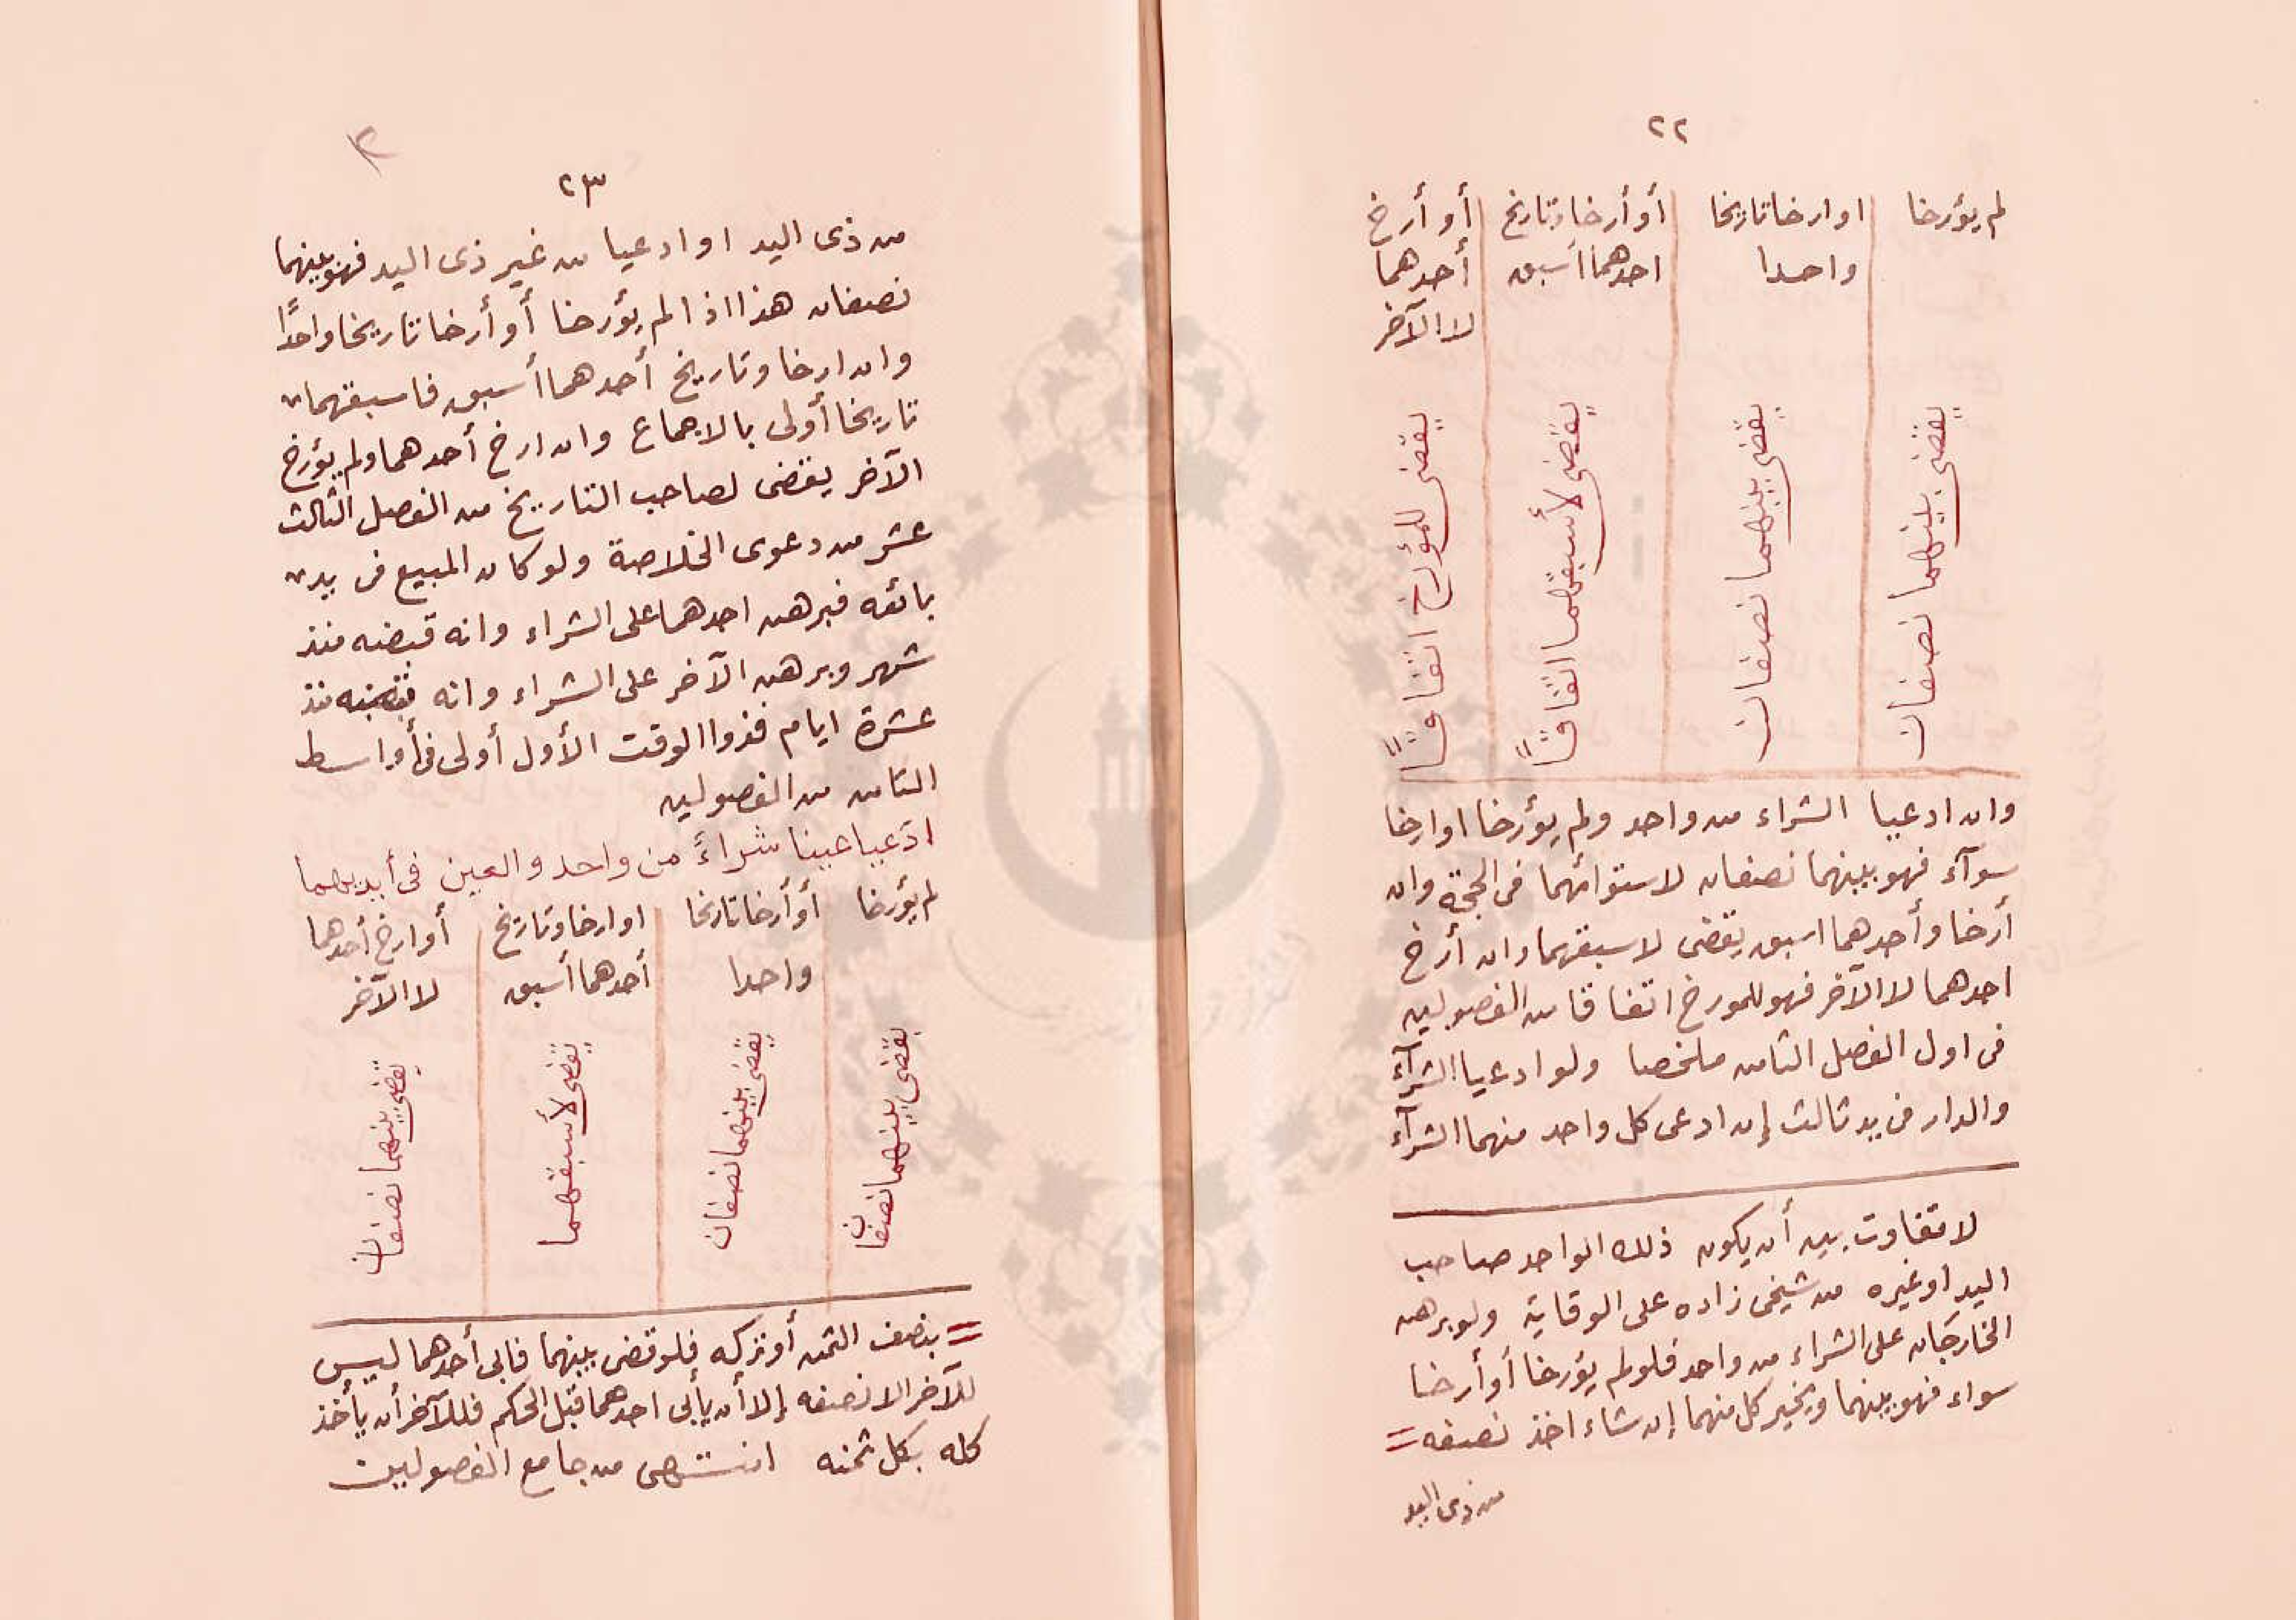 ٢٢
لم يؤرخا
او ارخا تاريخا
واحدا
أو أرخا وتاريخ
احدهما أسبق
أو أرخ
أحدهما
لا الآخر
يقضى بينهما نصفان
يقضى بينهما نصفان
يقضى لأسبقهما اتفاقًا
يقضى للمؤرخ اتفاقًا
وان ادعيا الشراء من واحد ولم يؤرخا او ارخا
سوآء فهو بينهما نصفان لاستوائهما فى الحجة وان
أرخا وأحدهما اسبق يقضى لاسبقهما وان أرخ
احدهما لا الآخر فهو للمورخ اتفاقا من الفصولين
فى اول الفصل الثامن ملخصا ولو ادعيا الشرآء
والدار فى يد ثالث إن ادعى كل واحد منهما الشرآء
لا تفاوت بين أن يكون ذلك الواحد صاحب
اليد او غيره من شيخى زاده على الوقاية ولو برهن
الخارجان على الشراء من واحد فلو لم يؤرخا أو أرخا
سواء فهو بينهما ويخير كل منهما إن شاء اخذ نصفه =
من ذى اليد
٢٣
من ذى اليد او ادعيا من غير ذى اليد فهو بينهما
نصفان هذا اذا لم يؤرخا أو أرخا تاريخا واحدًا
وان ارخا وتاريخ أحدهما أسبق فاسبقهما
تاريخا أولى بالاجماع وان ارخ أحدهما ولم يؤرخ
الآخر يقضى لصاحب التاريخ من الفصل الثالث
عشر من دعوى الخلاصة ولو كان المبيع فى يد
بائعه فبرهن احدهما على الشراء وانه قبضه منذ
شهر وبرهن الآخر على الشراء وانه قبضه منذ
عشرة ايام فذوا الوقت الأول أولى فى أواسط
الثامن من الفصولين
ادّعيا عينا شراءً من واحد والعين فى أيديهما
لم يؤرخا
أو أرخا تاريخا
واحدا
او ارخا وتاريخ
أحدهما أسبق
أو ارخ أحدهما
لا الآخر
يقضى بينهما نصفان
يقضى بينهما نصفان
يقضى لأسبقهما
يقضى بينهما نصفان
= بنصف الثمن أو تركه فلو قضى بينهما فابى أحدهما ليس
للآخر الا نصفه إلا أن يأبى احدهما قبل الحكم فللآخر أن يأخذ
كله بكل ثمنه انتهى من جامع الفصولين